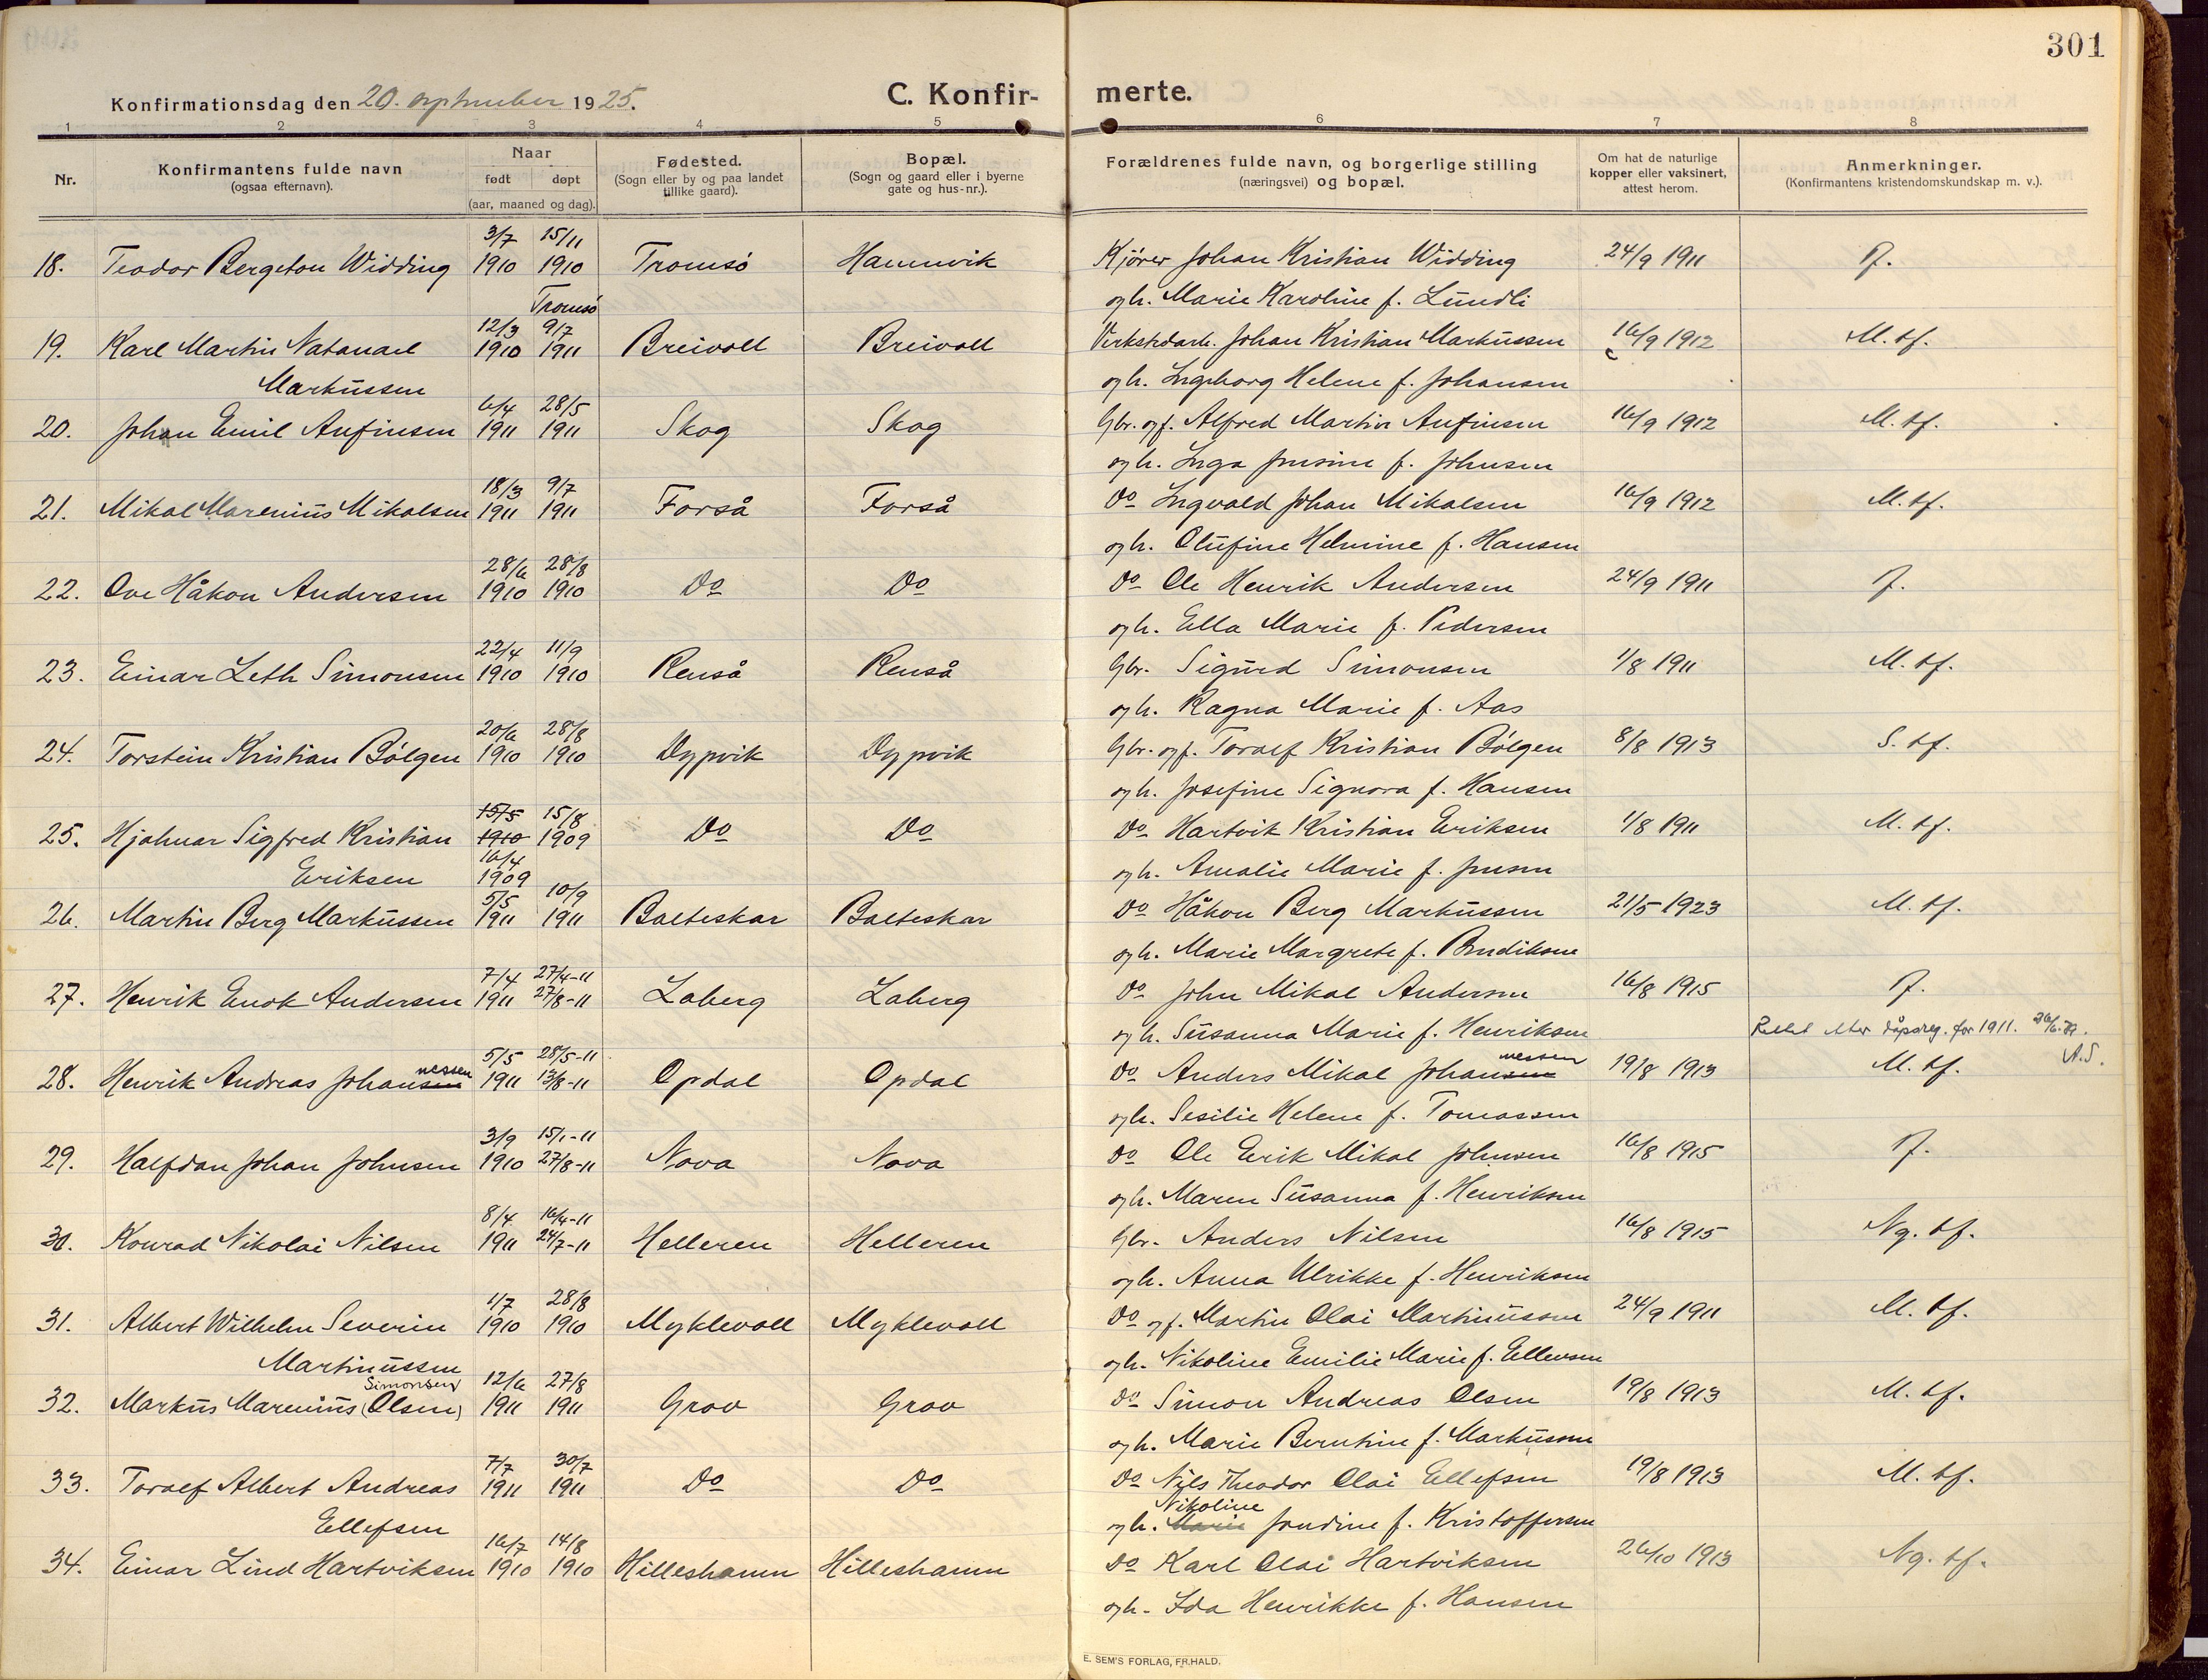 301
Konfirmationsdag den 20. september 1925.
C. Konfir-
merte.
1 2 3 4 5 6 7 8
Nr.
Konfirmantens fulde navn
(ogsaa efternavn).
Naar
født døpt
(aar, maaned og dag).
Fødested.
(Sogn eller by og paa landet
tillike gaard).
Bopæl.
(Sogn og gaard eller i byerne
gate og hus-nr.).
Forældrenes fulde navn, og borgerlige stilling
(næringsvei) og bopæl.
Om hat de naturlige
kopper eller vaksinert,
attest herom.
Anmerkninger.
(Konfirmantens kristendomskundskap m. v.).
3/7 15/11
18. Teodor Bergeton Widding 1910 1910 Tromsö Hamnvik Kjører Johan Kristian Widding 24/9 1911
Tromsö
og h. Marie Karoline f. Lundli
12/3 9/7
19. Karl Martin Natanael 1910 1911 Breivoll Breivoll Verkstedarb. Johan Kristian Markussen 16/9 1912 M. tf.
Markussen
og h. Ingeborg Helene f. Johansen
6/4 28/5
20. Johan Emil Anfinsen 1911 1911 Skog Skog Gbr. og f. Alfred Martin Anfinsen 16/9 1912 M. tf.
og h. Inga Jensine f. Johnsen
18/3 9/7
21. Mikal Marenius Mikalsen 1911 1911 Forså Forså Do Ingvald Johan Mikalsen 16/9 1912 M. tf.
og h. Olufine Helmine f. Hansen
28/6 28/8
22. Ove Håkon Andersen 1910 1910 Do Do Do Ole Henrik Andersen 24/9 1911
og h. Ella Marie f. Pedersen
22/4 11/9
23. Einar Leth Simonsen 1910 1910 Renså Renså Gbr. Sigurd Simonsen 1/8 1911 M. tf.
og h. Ragna Marie f. Aas
20/6 28/8
24. Torstein Kristian Bölgen 1910 1910 Dypvik Dypvik Gbr. og f. Toralf Kristian Bölgen 8/8 1913 S. tf.
og h. Josefine Signora f. Hansen
15/5 15/8
25. Hjalmar Sigfred Kristian 1910 1909 Do Do Do Hartvik Kristian Eriksen 1/8 1911 M. tf.
16/4
Eriksen 1909
og h. Amalie Marie f. Jensen
5/5 10/9
26. Martin Berg Markussen 1911 1911 Balteskar Balteskar Do Håkon Berg Markussen 21/5 1923 M. tf.
og h. Marie Margrete f. Bendiksen
7/4 27/4-11
27. Henrik Enok Andersen 1911 27/8-11 Laberg Laberg Do John Mikal Andersen 16/8 1915
og h. Susanna Marie f. Henriksen
Rettet etter dåpsreg. for 1911.
A.S.
5/5 28/5-11
nessen
28. Henrik Andreas Johansen 1911 13/8-11 Opdal Opdal Do Anders Mikal Johansen 19/8 1913 M. tf.
nessen
og h. Sesilie Helene f. Tomassen
3/9 15/1-11
29. Halfdan Johan Johnsen 1910 27/8-11 Nova Nova Do Ole Erik Mikal Johnsen 16/8 1915
og h. Maren Susanna f. Henriksen
8/4 16/4-11
30. Konrad Nikolai Nilsen 1911 24/7-11 Helleren Helleren Gbr. Anders Nilsen 16/8 1915 Ng. tf.
og h. Anna Ulrikke f. Henriksen
1/7 28/8
31. Albert Wilhelm Severin 1910 1910 Myklevoll Myklevoll Do og f. Martin Olai Martinussen 24/9 1911 M. tf.
Martinussen
og h. Nikoline Emilie Marie f. Ellevsen
Simonsen 12/6 27/8
32. Markus Marenius (Olsen) 1911 1911 Grov Grov Do Simon Andreas Olsen 19/8 1913 M. tf.
og h. Marie Berntine f. Markussen
7/7 30/7
33. Toralf Albert Andreas 1911 1911 Do Do Do Nils Theodor Olai Ellefsen 19/8 1913 M. tf.
Ellefsen
Nikoline
og h. Marie Jondine f. Kristoffersen
16/7 14/8
34. Einar Lind Hartviksen 1910 1910 Hilleshamn Hilleshamn Do Karl Olai Hartviksen 26/10 1913 Ng. tf.
og h. Ida Henrikke f. Hansen
E. SEM'S FORLAG, FR.HALD.